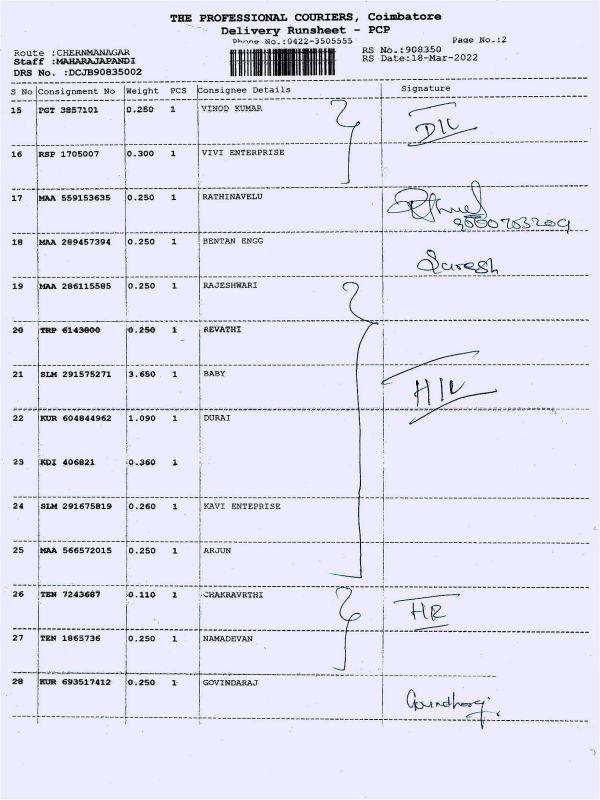 THE PROFESSIONAL COURIERS, Coimbatore
Delivery Runsheet - PCP
Phone No.:0422-3505555 Page No.:2
Route :CHERNMANAGAR RS No.:908350
Staff :MAHARAJAPANDI RS Date:18-Mar-2022
DRS No. :DCJB90835002
S No Consignment No Weight PCS Consignee Details Signature
15 PGT 3857101 0.250 1 VINOD KUMAR
16 RSP 1705007 0.300 1 VIVI ENTERPRISE
17 MAA 559153635 0.250 1 RATHINAVELU
18 MAA 289457394 0.250 1 BENTAN ENGG
Suresh
19 MAA 286115585 0.250 1 RAJESHWARI
20 TRP 6143800 0.250 1 REVATHI
21 SLM 291575271 3.650 1 BABY
22 KUR 604844962 1.090 1 DURAI
23 KDI 406821 0.360 1
24 SLM 291675819 0.260 1 KAVI ENTEPRISE
25 MAA 566572015 0.250 1 ARJUN
26 TEN 7243687 0.110 1 CHAKRAVRTHI
27 TEN 1865736 0.250 1 NAMADEVAN
28 KUR 693517412 0.250 1 GOVINDARAJ